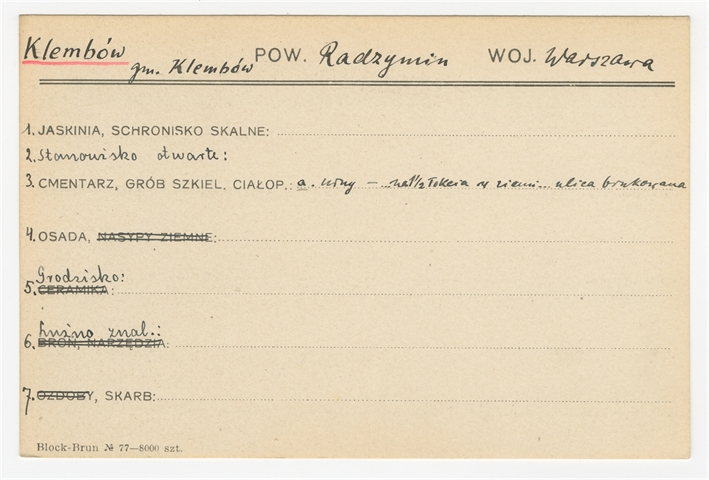 Klembów gm. Klembów POW. Radzymin WOJ. Warszawa
1. JASKINIA, SCHRONISKO SKALNE:
2. Stanowisko otwarte:
3. CMENTARZ, GRÓB SZKIEL. CIAŁOP.: a. urny – na 1/2 łokcia w ziemi ulica brukowana
4. OSADA, NASYPY ZIEMNE:
Grodzisko:
5. CERAMIKA:
Luźno znal.:
6. BROŃ, NARZĘDZIA:
7. OZDOBY, SKARB:
Block-Brun № 77—8000 szt.